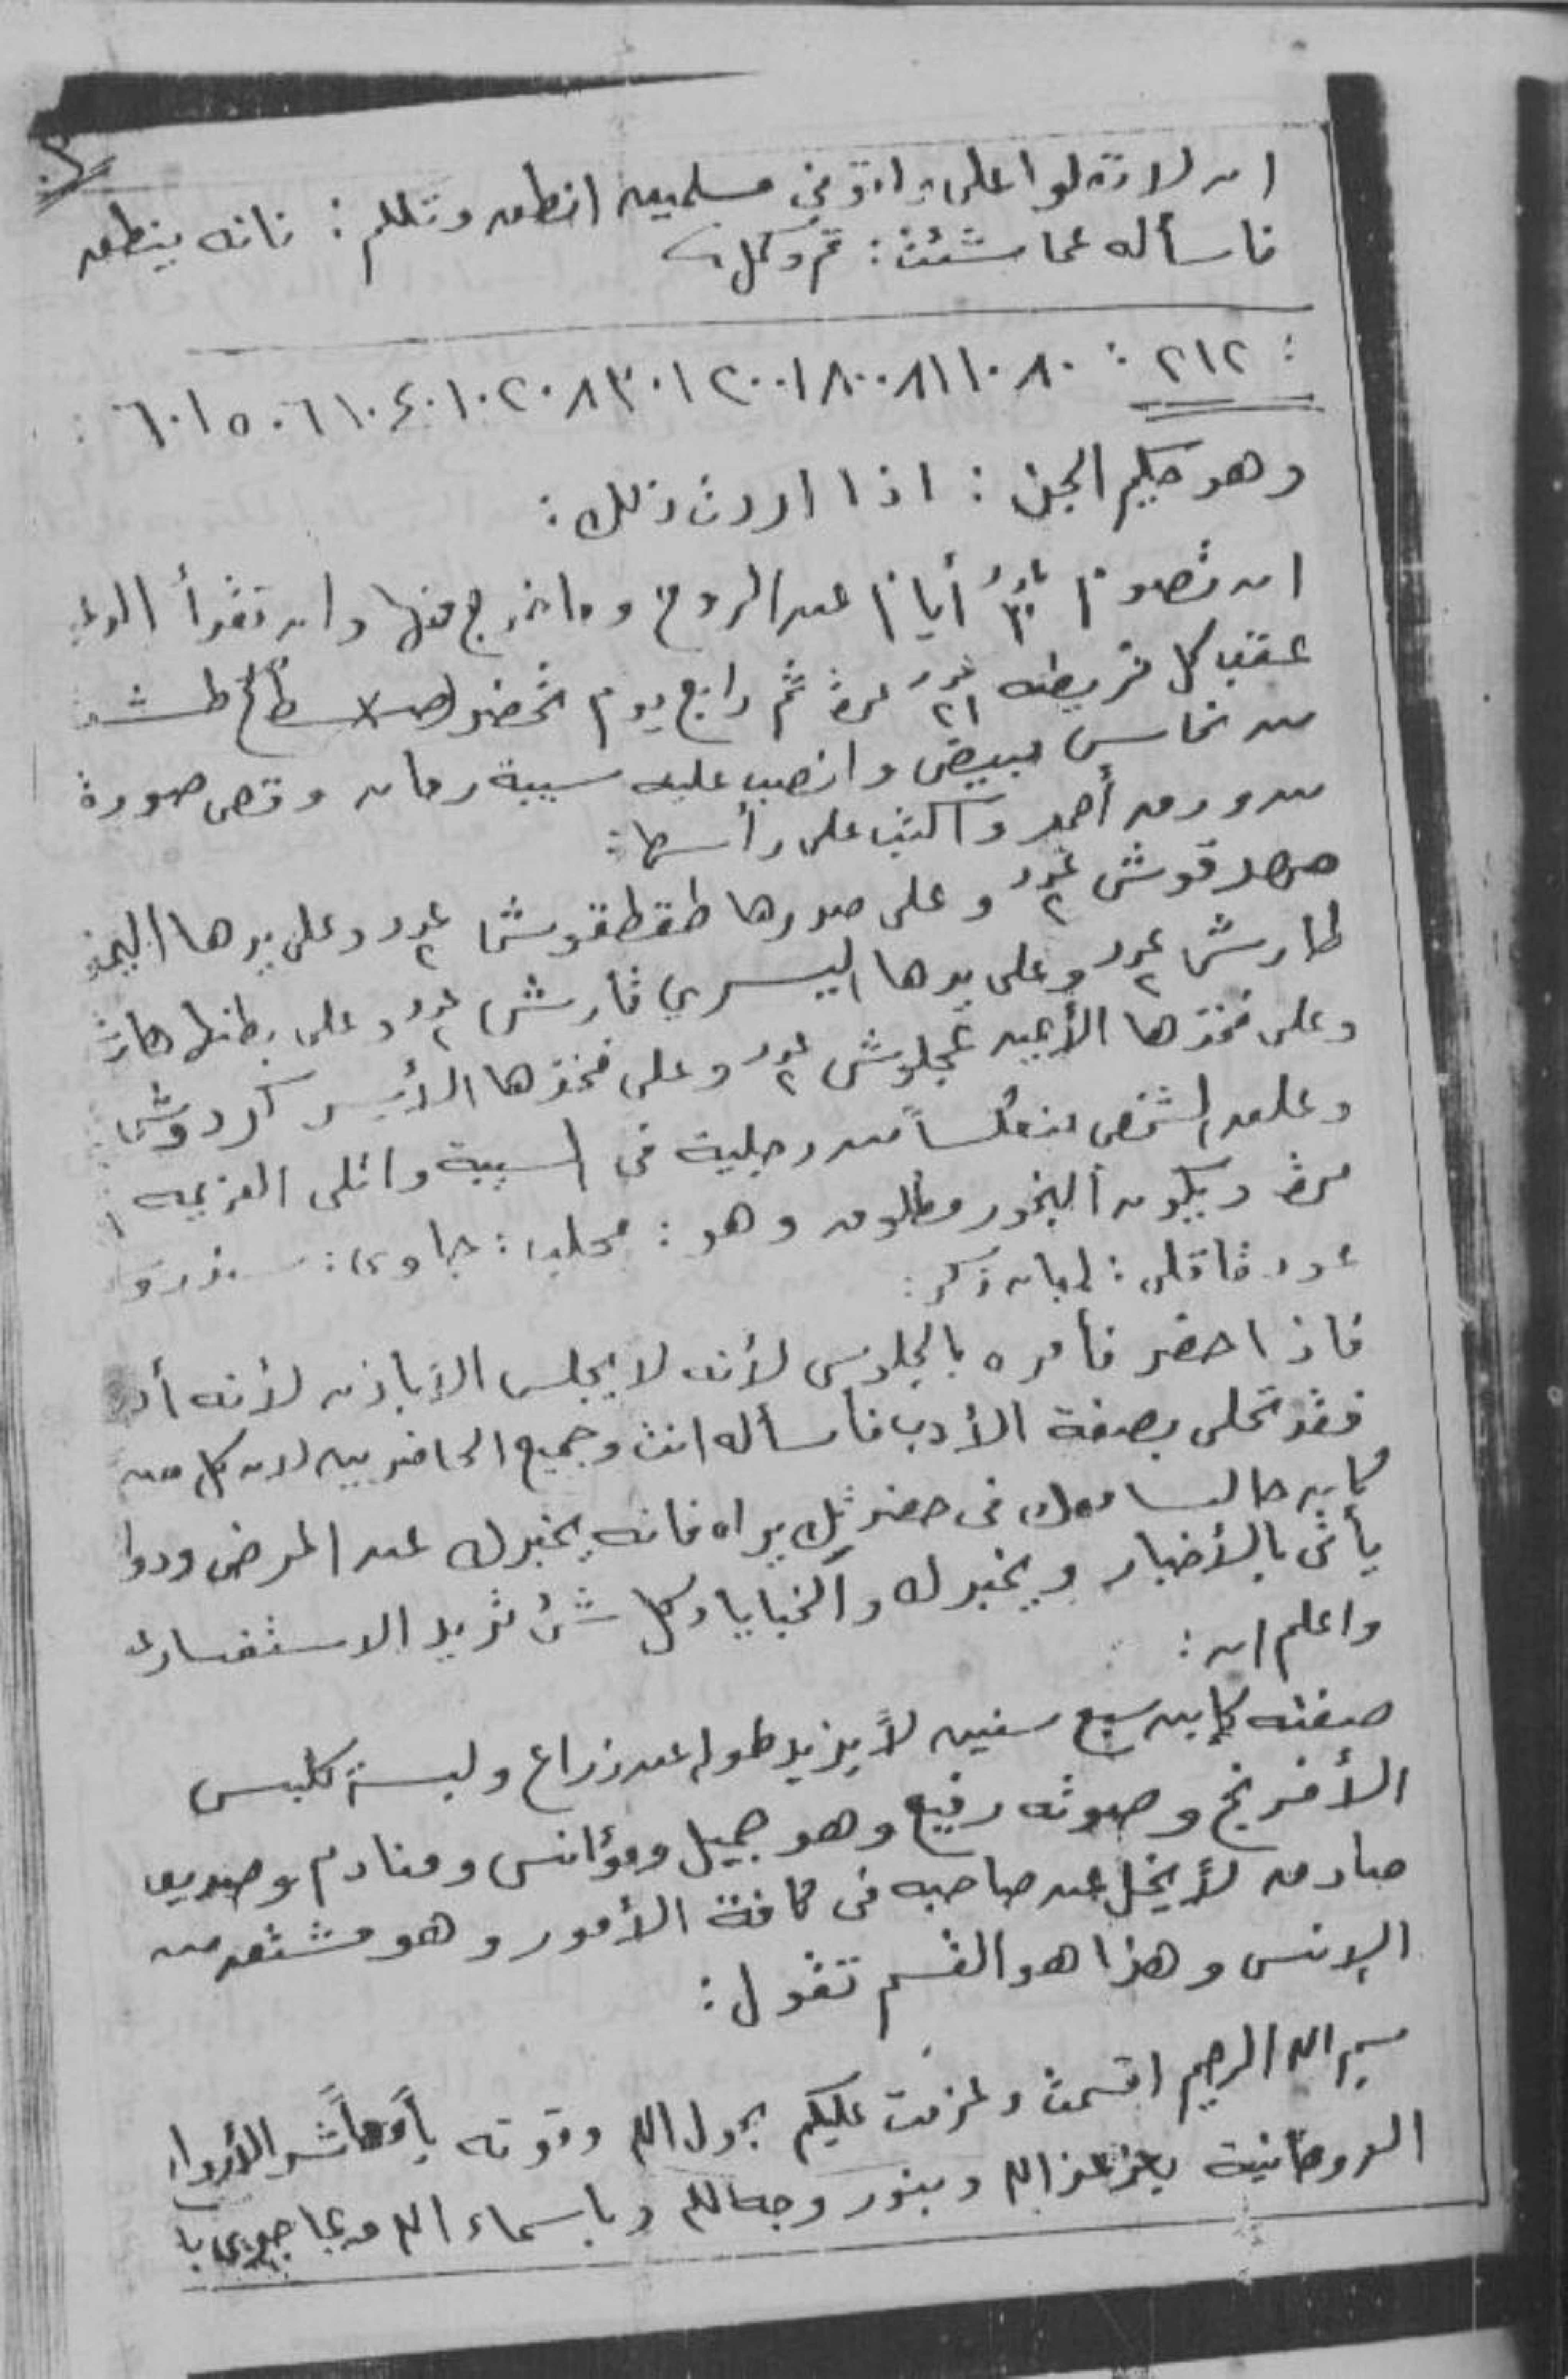 ان لا تعلوا على واتوني مسلمين انطق وتكلم : فانه ينطق
فاسأله عما شئت : تم وكمل
: ٢١٢ : ٨٠ ١٠ ٨١ ٨٠٠ ١ ٢٠٠ ١ ٣٠ ٨ ٢٠ ١٠ ٤٠ ١٠ ٦ ٥٠ ١ ٦٠ :
وهو حكيم الجن : اذا اردت ذلك :
ان تصوم ٣ أيام عن الروح وما خرج منها وان تقرأ
عقب كل فريضه عدد ٢١ مرة ثم رابع يوم تحضر طشت
من نحاس مبيض وانصب عليه سيبة رمان وقص صورة
من ورق أحمر واكتب على رأسها :
عدد ٢ وعلى صدرها طقطقوش عدد ٢ وعلى يدها اليمنى
طارش عدد ٢ وعلى يدها اليسري قارش عدد ٢ وعلى بطنها
وعلى فخذها الأيمن عجلوش عدد ٢ وعلى فخذها الأيسر كردوش
وعلق الشخص منعكساً من رجلية فى السيبة واتلى العزيمه
مرة ويكون البخور مطلوق وهو : محلب : جاوى :
عود قاقلى : لبان ذكر :
فاذا حضر فأمره بالجلوس لأنه لا يجلس الا باذن لأنه
فقد تحلى بصفة الأدب فأسأله انت وجميع الحاضرين لان كل من
كان جالسا معك فى حضرتك يراه فانه يخبرك عن المرض
يأتى بالأخبار ويخبرك والخبايا وكل شئ تريد الاستفسار
واعلم ان :
صفته كإبن سبع سنين لا يزيد طوله عن ذراع ولبسه كلبس
الأفرنج وصوته رفيع وهو جميل ومؤانس ومنادم وصديق
صادق لا يخل عن صاحبه فى كافة الأمور وهو مشتق من
الإنس وهذا هو القسم تقول :
بسم الله الرحيم اقسمت وعزمت عليكم بحول الله وقوته يا معاشر الأرواح
الروحانية بعز عز الله وبنور وجه الله وباسماء الله وبما جرى